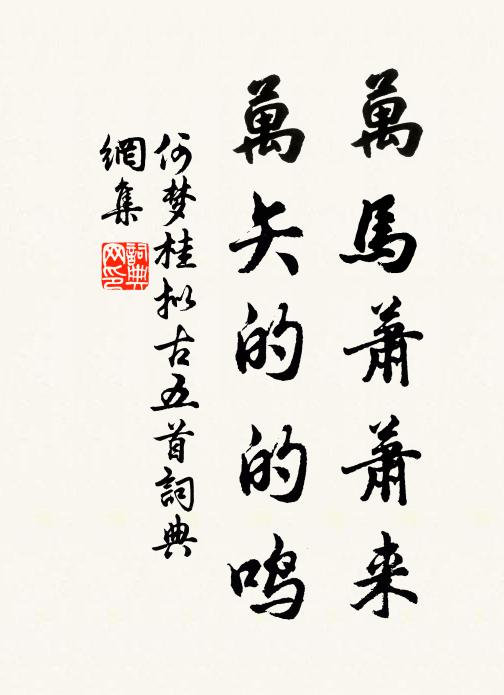 萬馬蕭蕭来
萬矢的的鸣
何梦桂拟古五首詞典
網集
詞典
网印